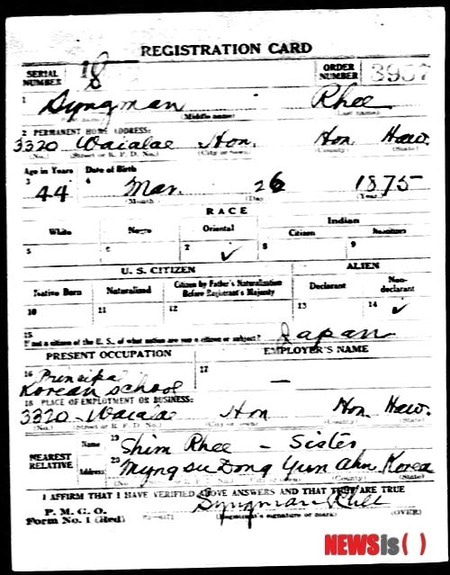 REGISTRATION CARD
SERIAL NUMBER 18 ORDER NUMBER 3957
1 Syngman Rhee
(Middle name) (Last name)
2 PERMANENT HOME ADDRESS:
3320 Waialae Hon. Hon. Haw.
(No.) (Street or R. F. D. No.) (City or town) (County) (State)
Age in Years Date of Birth
3 44 4 Mar. 26 1875
(Month) (Day) (Year)
RACE
White Negro Oriental Indian
Citizen
5 6 7 ✓ 8 9
U. S. CITIZEN ALIEN
Native Born Naturalized Citizen by Father's Naturalization Before Registrant's Majority Declarant Non-declarant
10 11 12 13 14 ✓
15
If not a citizen of the U. S., of what nation are you a citizen or subject? Japan
PRESENT OCCUPATION EMPLOYER'S NAME
16 Principal 17 —
Korean School
18 PLACE OF EMPLOYMENT OR BUSINESS:
3320 Waialae Hon Hon. Haw.
(No.) (Street or R. F. D. No.) (City or town) (County) (State)
NEAREST RELATIVE
Name 19 Shim Rhee - Sister
Address 20 Myng su Dong Yun Ahn Korea
(No.) (City or town) (County) (State)
I AFFIRM THAT I HAVE VERIFIED ABOVE ANSWERS AND THAT THEY ARE TRUE
P. M. G. O.
Form No. 1 (Red) Syngman Rhee
(Registrant's signature or mark) (OVER)
NEWSis( )